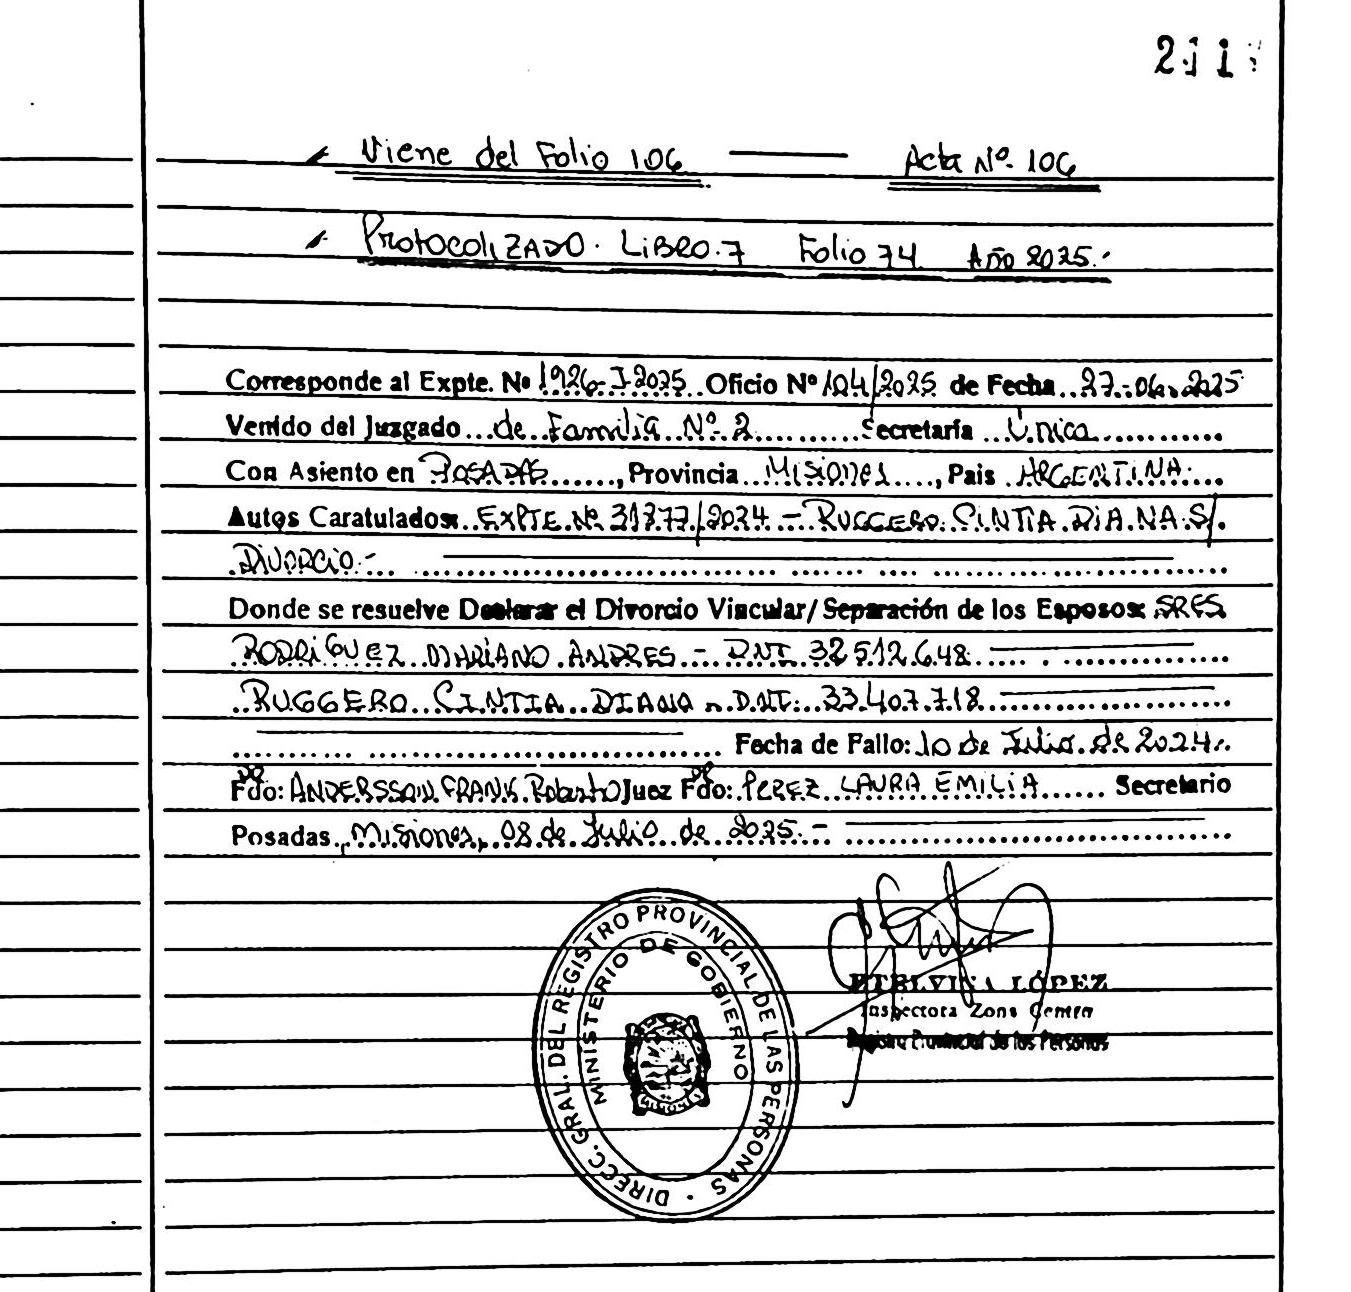 211
Viene del Folio 106 —— Acta Nº 106
Protocolizado. Libro.7 Folio 74 Año 2025.-
Corresponde al Expte. Nº 1926-J-2025 Oficio Nº 104/2025 de Fecha 27-06-2025
Venido del Juzgado de Familia Nº 2 Secretaría Única
Con Asiento en POSADAS, Provincia Misiones, Pais ARGENTINA.
Autos Caratulados: EXPTE Nº 31377/2024 - RUGGERO CINTIA DIANA S/.
DIVORCIO.-
Donde se resuelve Declarar el Divorcio Vincular/Separación de los Esposos: SRES
RODRIGUEZ MARIANO ANDRES - DNI 32512.648
RUGGERO CINTIA DIANA - D.NI: 33.407.718
Fecha de Fallo: 10 de Julio de 2024.
Fdo: ANDERSSON FRANK Roberto Juez Fdo: PEREZ LAURA EMILIA Secretario
Posadas, Misiones, 08 de Julio de 2025.-
DIRECC. GRAL. DEL REGISTRO PROVINCIAL DE LAS PERSONAS
MINISTERIO DE GOBIERNO
ETELVINA LÓPEZ
Inspectora Zona Centro
Registro Provincial de las Personas